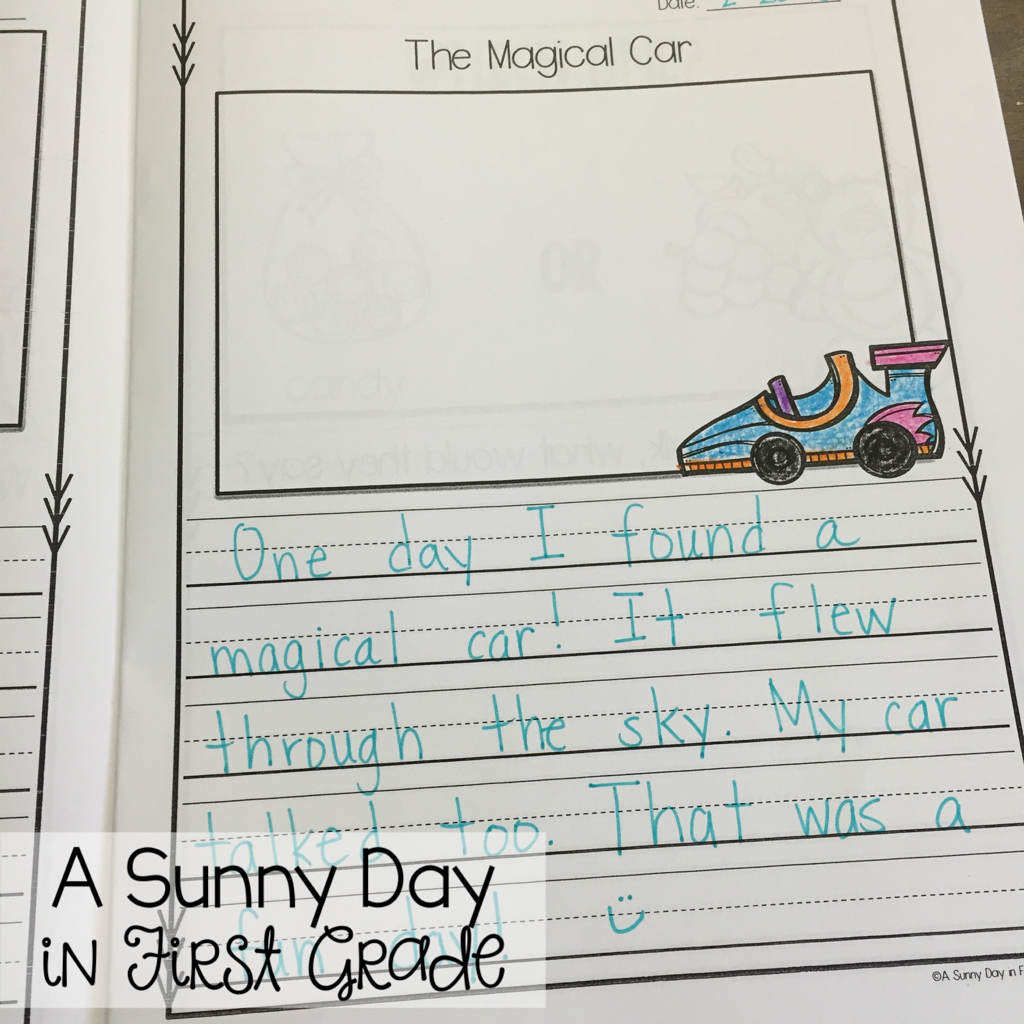 Date: 2
The Magical Car
candy
what would they say?
One day I found a
magical car! It flew
through the sky. My car
talked too. That was a
fun day!
A Sunny Day
in First Grade
©A Sunny Day in F